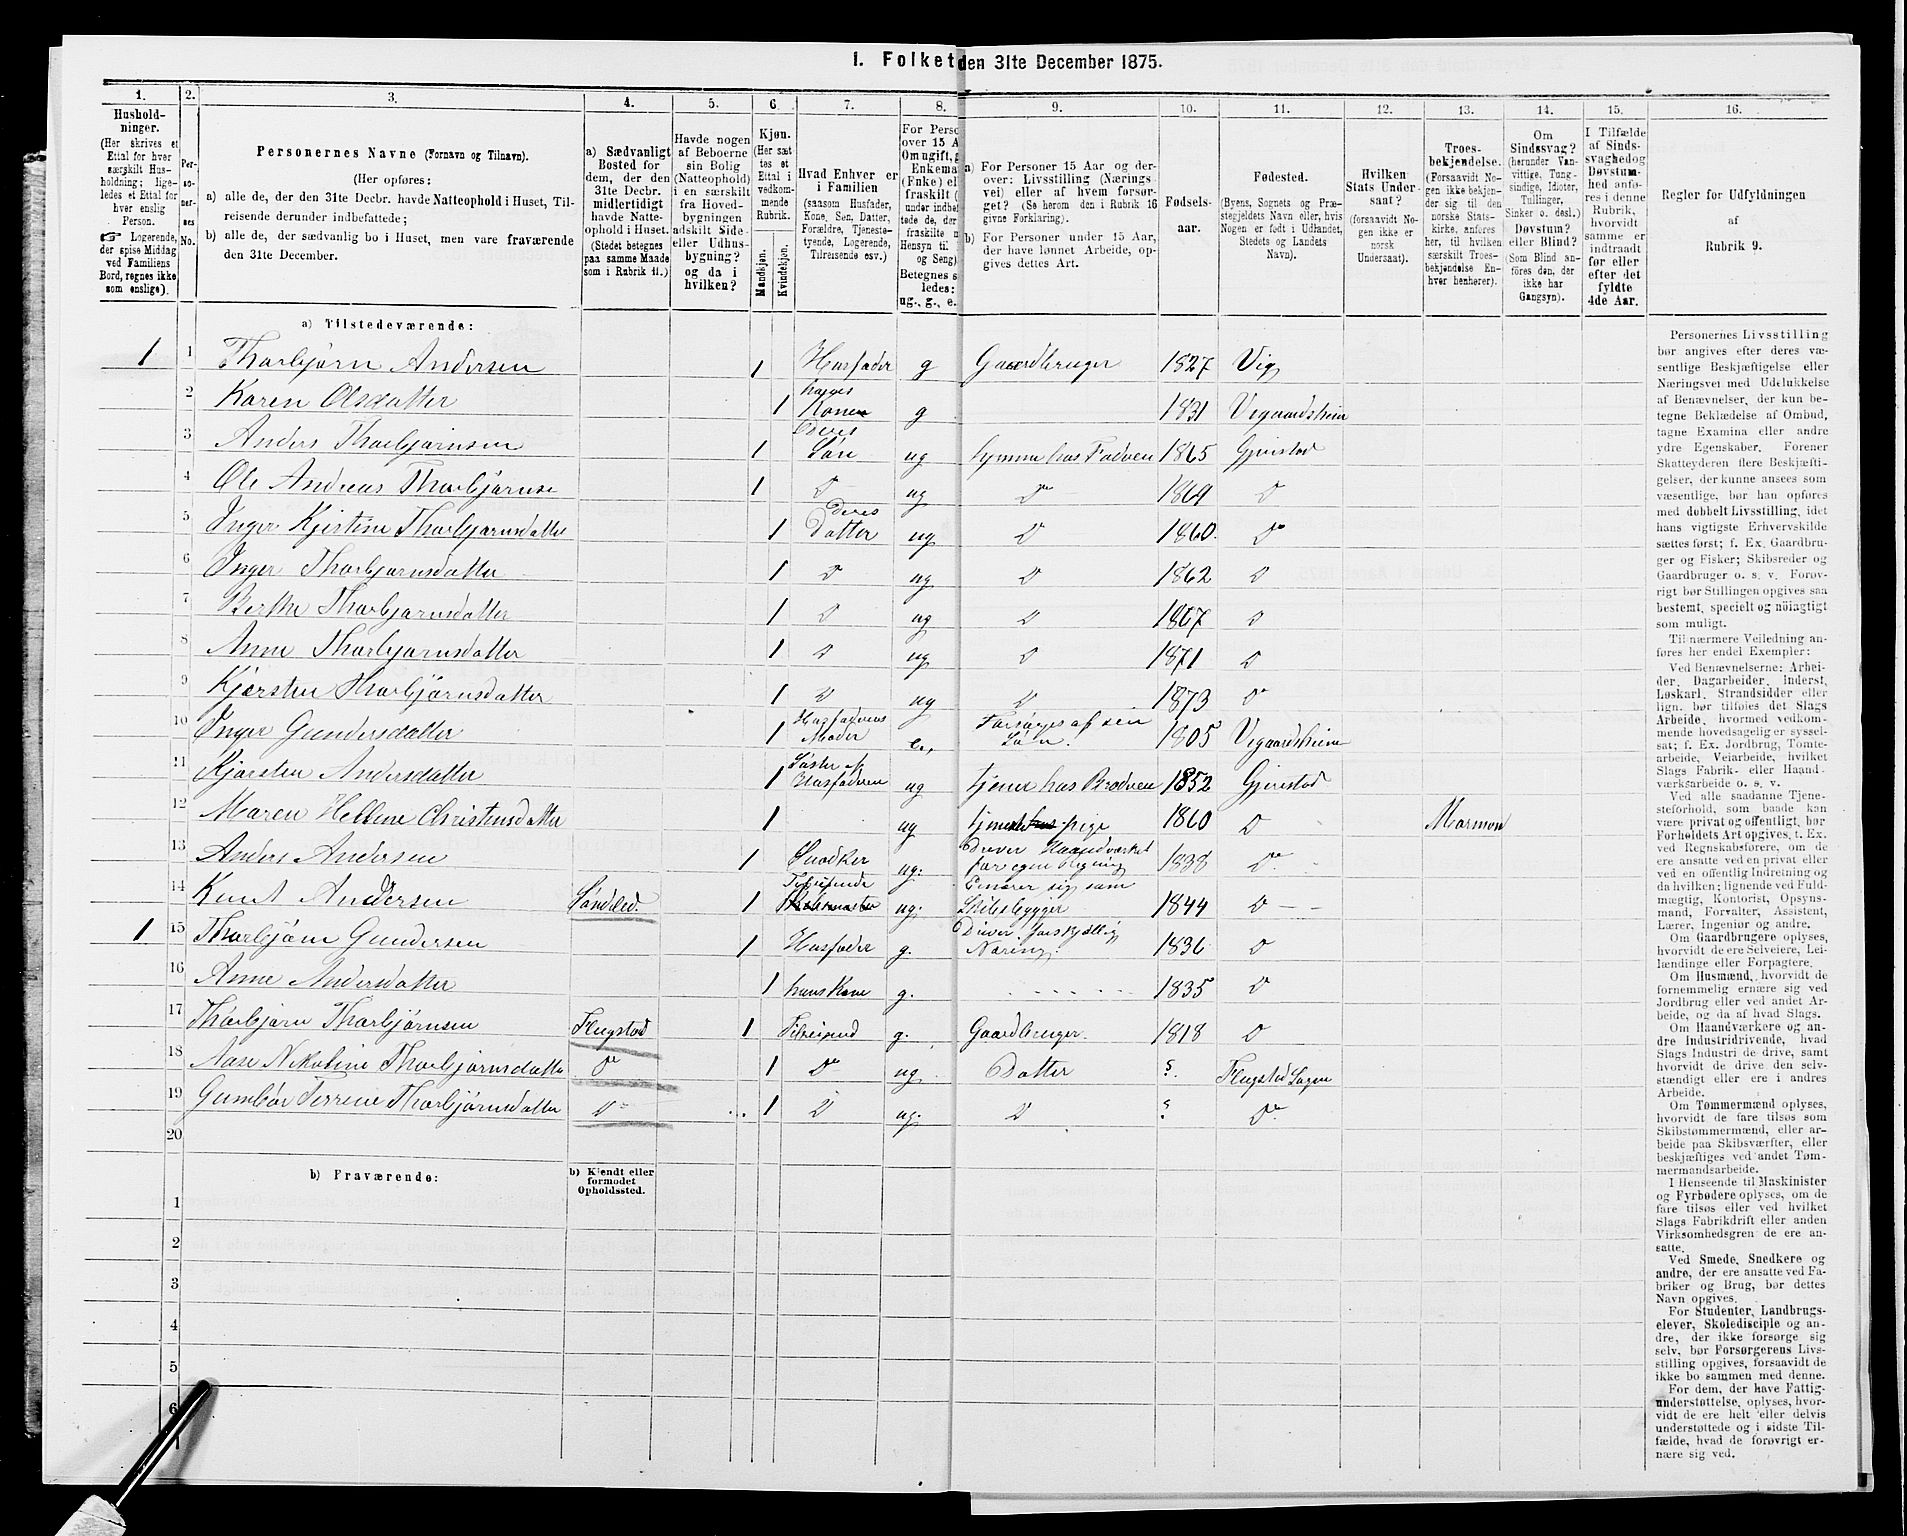 1. Folket den 31te December 1875.
1. 2. 3. 4. 5. 6. 7. 8. 9. 10. 11. 12. 13. 14. 15. 16.
Hushold-
ninger.
(Her skrives et
Ettal for hver
særskilt Hus-
holdning; lige-
ledes et Ettal for
hver enslig
Person.
☞ Logerende,
der spise Middag
ved Familiens
Bord, regnes ikke
som enslige).
Per-
so-
ner-
nes
No.
Personernes Navne (Fornavn og Tilnavn).
(Her opføres:
a) alle de, der den 31te Decbr. havde Natteophold i Huset, Til-
reisende derunder indbefattede;
b) alle de, der sædvanlig bo i Huset, men vare fraværende
den 31te December.
a) Sædvanligt
Bosted for
dem, der den
31te Decbr.
midlertidigt
havde Natte-
ophold i Huset.
(Stedet betegnes
paa samme Maade
som i Rubrik 11.)
Havde nogen
af Beboerne
sin Bolig
(Natteophold)
i en særskilt
fra Hoved-
bygningen
adskilt Side-
eller Udhus-
bygning?
og da i
hvilken?
Kjøn.
(Her sæt-
tes et
Ettal i
vedkom-
mende
Rubrik.
Mandkjøn.
Kvindekjøn.
Hvad Enhver er
i Familien
(saasom Husfader,
Kone, Søn, Datter,
Forældre, Tjeneste-
tyende, Logerende,
Tilreisende osv.)
For Perso
over 15 A
Om ugift, g
Enkema
(Enke) el
fraskilt (
under indbef
tede de, der
fraskilte m
Hensyn til
og Seng)
Betegnes s
ledes:
ug., g., e.
a) For Personer 15 Aar og der-
over: Livsstilling (Nærings-
vei) eller af hvem forsør-
get? (Se herom den i Rubrik 16
givne Forklaring).
b) For Personer under 15 Aar,
der have lønnet Arbeide, op-
gives dettes Art.
Fødsels-
aar.
Fødested.
(Byens, Sognets og Præ-
stegjeldets Navn eller, hvis
Nogen er født i Udlandet,
Stedets og Landets
Navn).
Hvilken
Stats Under-
saat?
(forsaavidt No-
gen ikke er
norsk
Undersaat).
Troes-
bekjendelse.
(Forsaavidt No-
gen ikke bekjen-
der sig til den
norske Stats-
kirke, anføres
her, til hvilken
særskilt Troes-
bekjendelse En-
hver henhører).
Om
Sindssvag?
(herunder Van-
vittige, Tung-
sindige, Idioter,
Sinker o. desl.)
Døvstum?
eller Blind?
(Som Blind an-
føres den, der
ikke har
Gangsyn).
I Tilfælde
af Sinds-
svaghed og
Døvstum-
hed anfø-
res i denne
Rubrik,
hvorvidt
samme er
indtraadt
før eller
efter det
fyldte
4de Aar.
Regler for Udfyldningen
af
Rubrik 9.
a) Tilstedeværende:
1 1 Thorbjørn Andersen 1 Husfader g Gaardbruger 1827 Vig
2 Karen Olsdatter 1 hans Kone g 1831 Vegaardsheim
3 Anders Thorbjørnsen 1 Deres Søn ug hjemme hos Fadren 1865 Gjerestad
4 Ole Andreas Thorbjørnse 1 D ug Do 1869 D
5 Inger Kjerstine Thorbjørnsdatter 1 deres Datter ug D 1860 Do
6 Inger Thorbjørnsdatter 1 D ug D 1862 D
7 Berthe Thorbjørnsdatter 1 D ug D 1867 D
8 Anne Thorbjørnsdatter 1 D ug D 1871 D
9 Kjersten Thorbjørnsdatter 1 D ug D 1873 Do
10 Inger Gundersdatter 1 Husfaderens Moder e. Forsørges af sin Søn. 1805 Vegaardsheim
11 Kjersten Andersdatter 1 Søster af Husfaderen ug tjener hos Brodren 1852 Gjerestad
12 Maren Hellene Christensdatter 1 ug tjeneste pige 1860 D Mormon
13 Anders Andersen 1 Snedker ug. Driver Haandværket for egen Regning 1838 Do
14 Knut Andersen Søndeled. 1 Tilreisende ug. Ernærer sig som Skibsbygger 1844 D
1 15 Thorbjørn Gundersen 1 Husfader g. Driver forskjellig Næring. 1836 D
16 Anne Andersdatter 1 hans Kone g. 1835 D
17 Thorbjørn Thorbjørnsen Flugstad 1 Tilreisend g. Gaardbruger. 1818 D
18 Aase Nikoline Thorbjørnsdatter Do 1 Do ug Datter ?. Flugstad Sogn
19 Gunbør Terrene Thorbjørnsdatter Do 1 D ug. D ? Do
20
b) Fraværende:
b) Kjendt eller
formodet
Opholdssted.
1
2
3
4
5
6
Personernes Livsstilling
bør angives efter deres væ-
sentlige Beskjæftigelse eller
Næringsvei med Udelukkelse
af Benævnelser, der kun be-
tegne Beklædelse af Ombud,
tagne Examina eller andre
ydre Egenskaber. Forener
Skatteyderen flere Beskjæfti-
gelser, der kunne ansees som
væsentlige, bør han opføres
med dobbelt Livsstilling, idet
hans vigtigste Erhvervskilde
sættes først; f. Ex. Gaardbru-
ger og Fisker; Skibsreder og
Gaardbruger o. s. v. Forøv-
rigt bør Stillingen opgives saa
bestemt, specielt og nøiagtigt
som muligt.
Til nærmere Veiledning an-
føres her endel Exempler:
Ved Benævnelserne: Arbei-
der, Dagarbeider, Inderst,
Løskarl, Strandsidder eller
lign. bør tilføies det Slags
Arbeide, hvormed vedkom-
mende hovedsagelig er syssel-
sat; f. Ex. Jordbrug, Tomte-
arbeide, Veiarbeide, hvilket
Slags Fabrik- eller Haand-
værksarbeide o. s. v.
Ved alle saadanne Tjene-
steforhold, som baade kan
være privat og offentligt, bør
Forholdets Art opgives, t. Ex.
ved Regnskabsførere, om de
ere ansatte ved en privat eller
ved en offentlig Indretning og
da hvilken; lignende ved Fuld-
mægtig, Kontorist, Opsyns-
mand, Forvalter, Assistent,
Lærer, Ingeniør og andre.
Om Gaardbrugere opgives,
hvorvidt de ere Selveiere, Lei-
lændinge eller Forpagtere.
Om Husmænd, hvorvidt de
fornemmelig ernære sig ved
Jordbrug eller ved andet Ar-
beide, og da af hvad Slags.
Om Haandværkere og an-
dre Industridrivende, hvad
Slags Industri de drive, samt
hvorvidt de drive den selv-
stændigt eller ere i andres
Arbeide.
Om Tømmermænd oplyses,
hvorvidt de fare tilsøs som
Skibstømmermænd, eller ar-
beide paa Skibsværfter, eller
beskjæftiges ved andet Tøm-
mermandsarbeide.
I Henseende til Maskinister
og Fyrbødere oplyses, om de
fare tilsøs eller ved hvilket
Slags Fabrikdrift eller anden
Virksomhedsgren de ere an-
satte.
Ved Smede, Snedkere og
andre, der ere ansatte ved Fa-
briker og Brug, bør dettes
Navn opgives.
For Studenter, Landbrugs-
elever, Skoledisciple og an-
dre, der ikke forsørge sig
selv, bør Forsørgerens Livs-
stilling opgives, forsaavidt de
ikke bo sammen med denne.
For dem, der have Fattig-
understøttelse, oplyses, hvor-
vidt de ere helt eller delvis
understøttede og i sidste Til-
fælde, hvad de forøvrigt er-
nære sig ved.